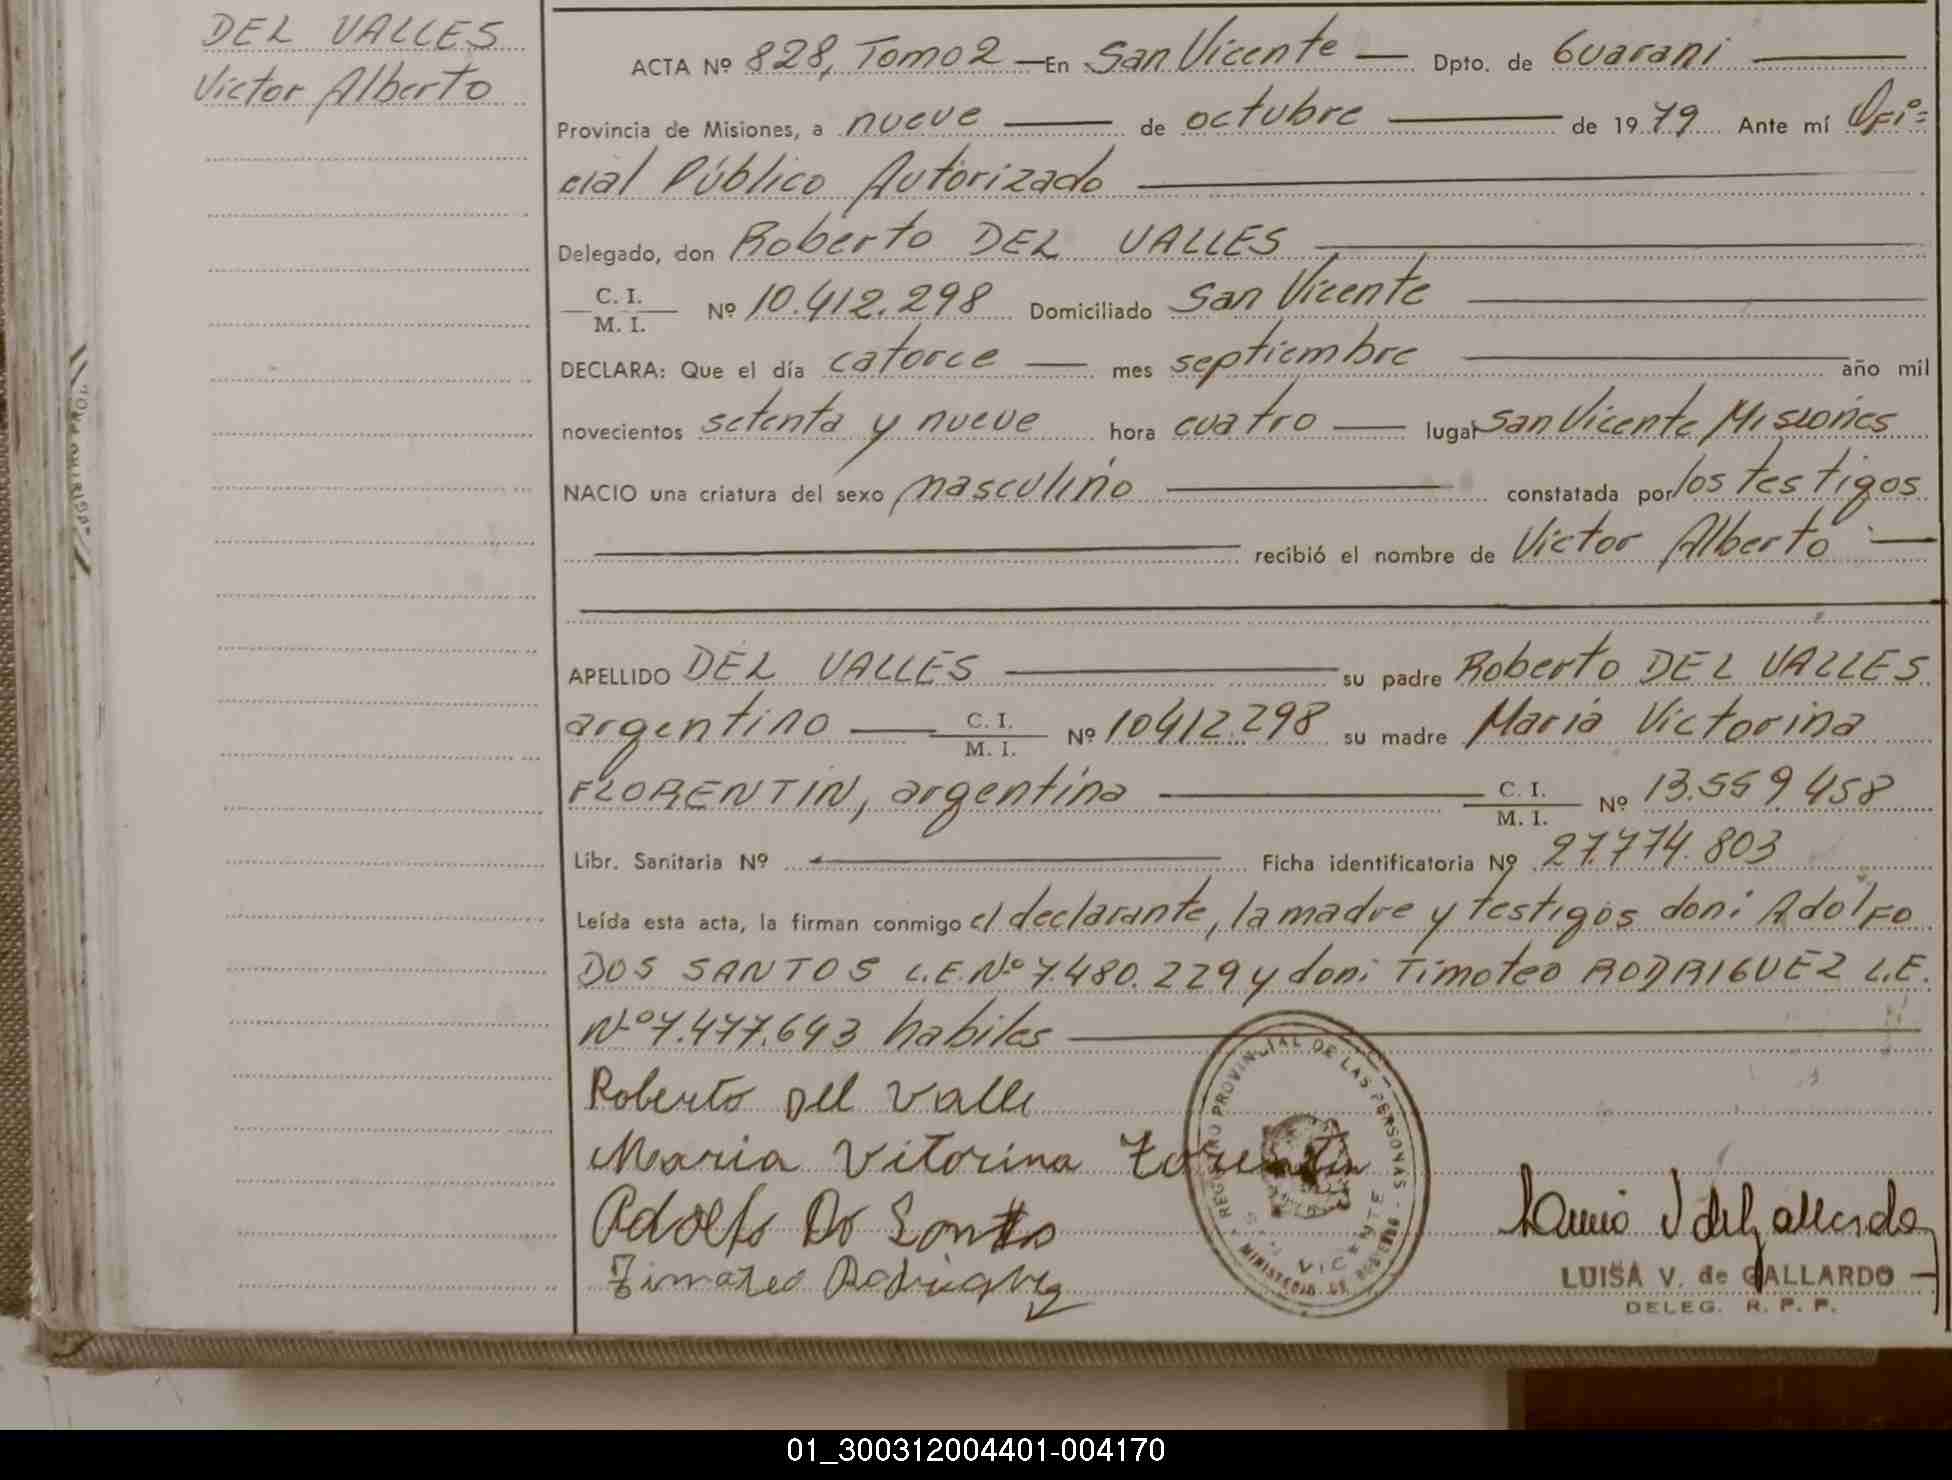 DEL VALLES
Victor Alberto
ACTA Nº 828, Tomo 2 — En San Vicente — Dpto. de Guarani
Provincia de Misiones, a nueve — de octubre — de 1979 Ante mí Ofi=
cial Público Autorizado
Delegado, don Roberto DEL VALLES
C. I.
M. I. Nº 10.412.298 Domiciliado San Vicente
DECLARA: Que el día catorce — mes septiembre — año mil
novecientos setenta y nueve hora cuatro — lugar San Vicente Misiones
NACIO una criatura del sexo masculino — constatada por los testigos
recibió el nombre de Victor Alberto —
APELLIDO DEL VALLES — su padre Roberto DEL VALLES
argentino — C. I. M. I. Nº 10412.298 su madre Maria Victorina
FLORENTIN, argentina — C. I. M. I. Nº 13.559.458
Libr. Sanitaria Nº — Ficha identificatoria Nº 27.774.803
Leída esta acta, la firman conmigo el declarante, la madre y testigos don: Adolfo
DOS SANTOS L.E. Nº 7.480.229 y don: Timoteo RODRIGUEZ L.E.
Nº 7.477.643 habiles
Roberto Del Valle
Maria Vitorina Florentin
Adolfo Do Santo
Timoteo Rodriguez
REGISTRO PROVINCIAL DE LAS PERSONAS
SAN VICENTE
MINISTERIO DE GOBIERNO
LUISA V. de GALLARDO
DELEG. R. P. P.
01_300312004401-004170